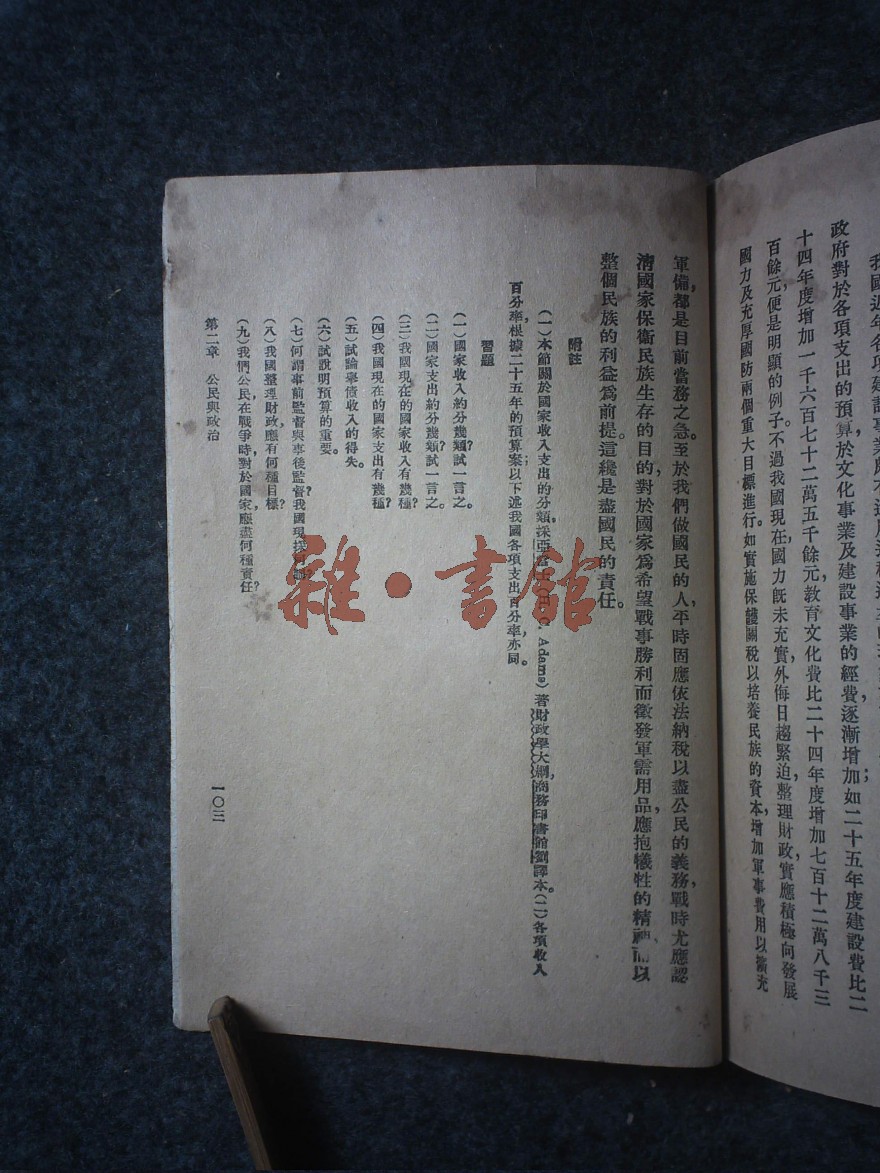 政府對於各項支出的預算於文化事業及建設事業的經費逐漸增加如二十五年度建設費比二
十四年度增加一千六百七十二萬五千餘元,教育文化費比二十四年度增加七百十二萬八千三
百餘元,便是明顯的例子。不過我國現在,國力既未充實,外侮日趨緊迫,整理財政,實應積極向發展
國力及充厚國防兩個重大目標進行。如實施保護關稅以培養民族的資本,增加軍事費用以擴充
軍備,都是目前當務之急。至於我們做國民的人,平時固應依法納稅以盡公民的義務,戰時尤應認
清國家保衛民族生存的目的,對於國家為希望戰事勝利而徵發軍需用品,應抱犧牲的精神,而以
整個民族的利益為前提。這纔是盡國民的責任。
附註
(一)本節關於國家收入支出的分類,採 Adams)著財政學大綱,商務印書館劉譯本。(二)各項收入
百分率,根據二十五年的預算案;以下述我國各項支出百分率,亦同。
習題
(一)國家收入約分幾類?試一言之。
(二)國家支出約分幾類?試一言之。
(三)我國現在的國家收入有幾種?
(四)我國現在的國家支出有幾種?
(五)試論舉債收入的得失。
(六)試說明預算的重要。
(七)何謂事前監督與事後監督?我國現採
(八)我國整理財政,應有何種目標?
(九)我們公民在戰爭時,對於國家,應盡何種責任?
第二章 公民與政治
一〇三
雜·書館